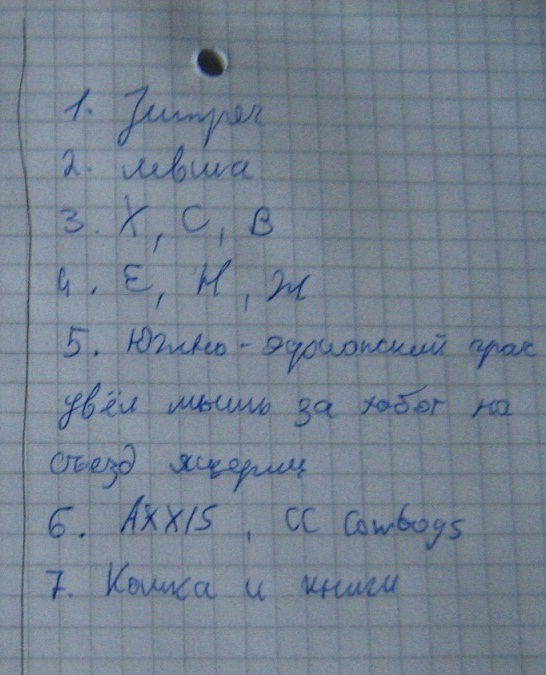 1. Зитрег
2. левша
3. Х, С, В
4. Е, Н, Ж
5. Южно-эфиопский грач
увёл мышь за хобот на
съезд ящериц
6. AXXIS, CC Cowboys
7. Кошка и книги